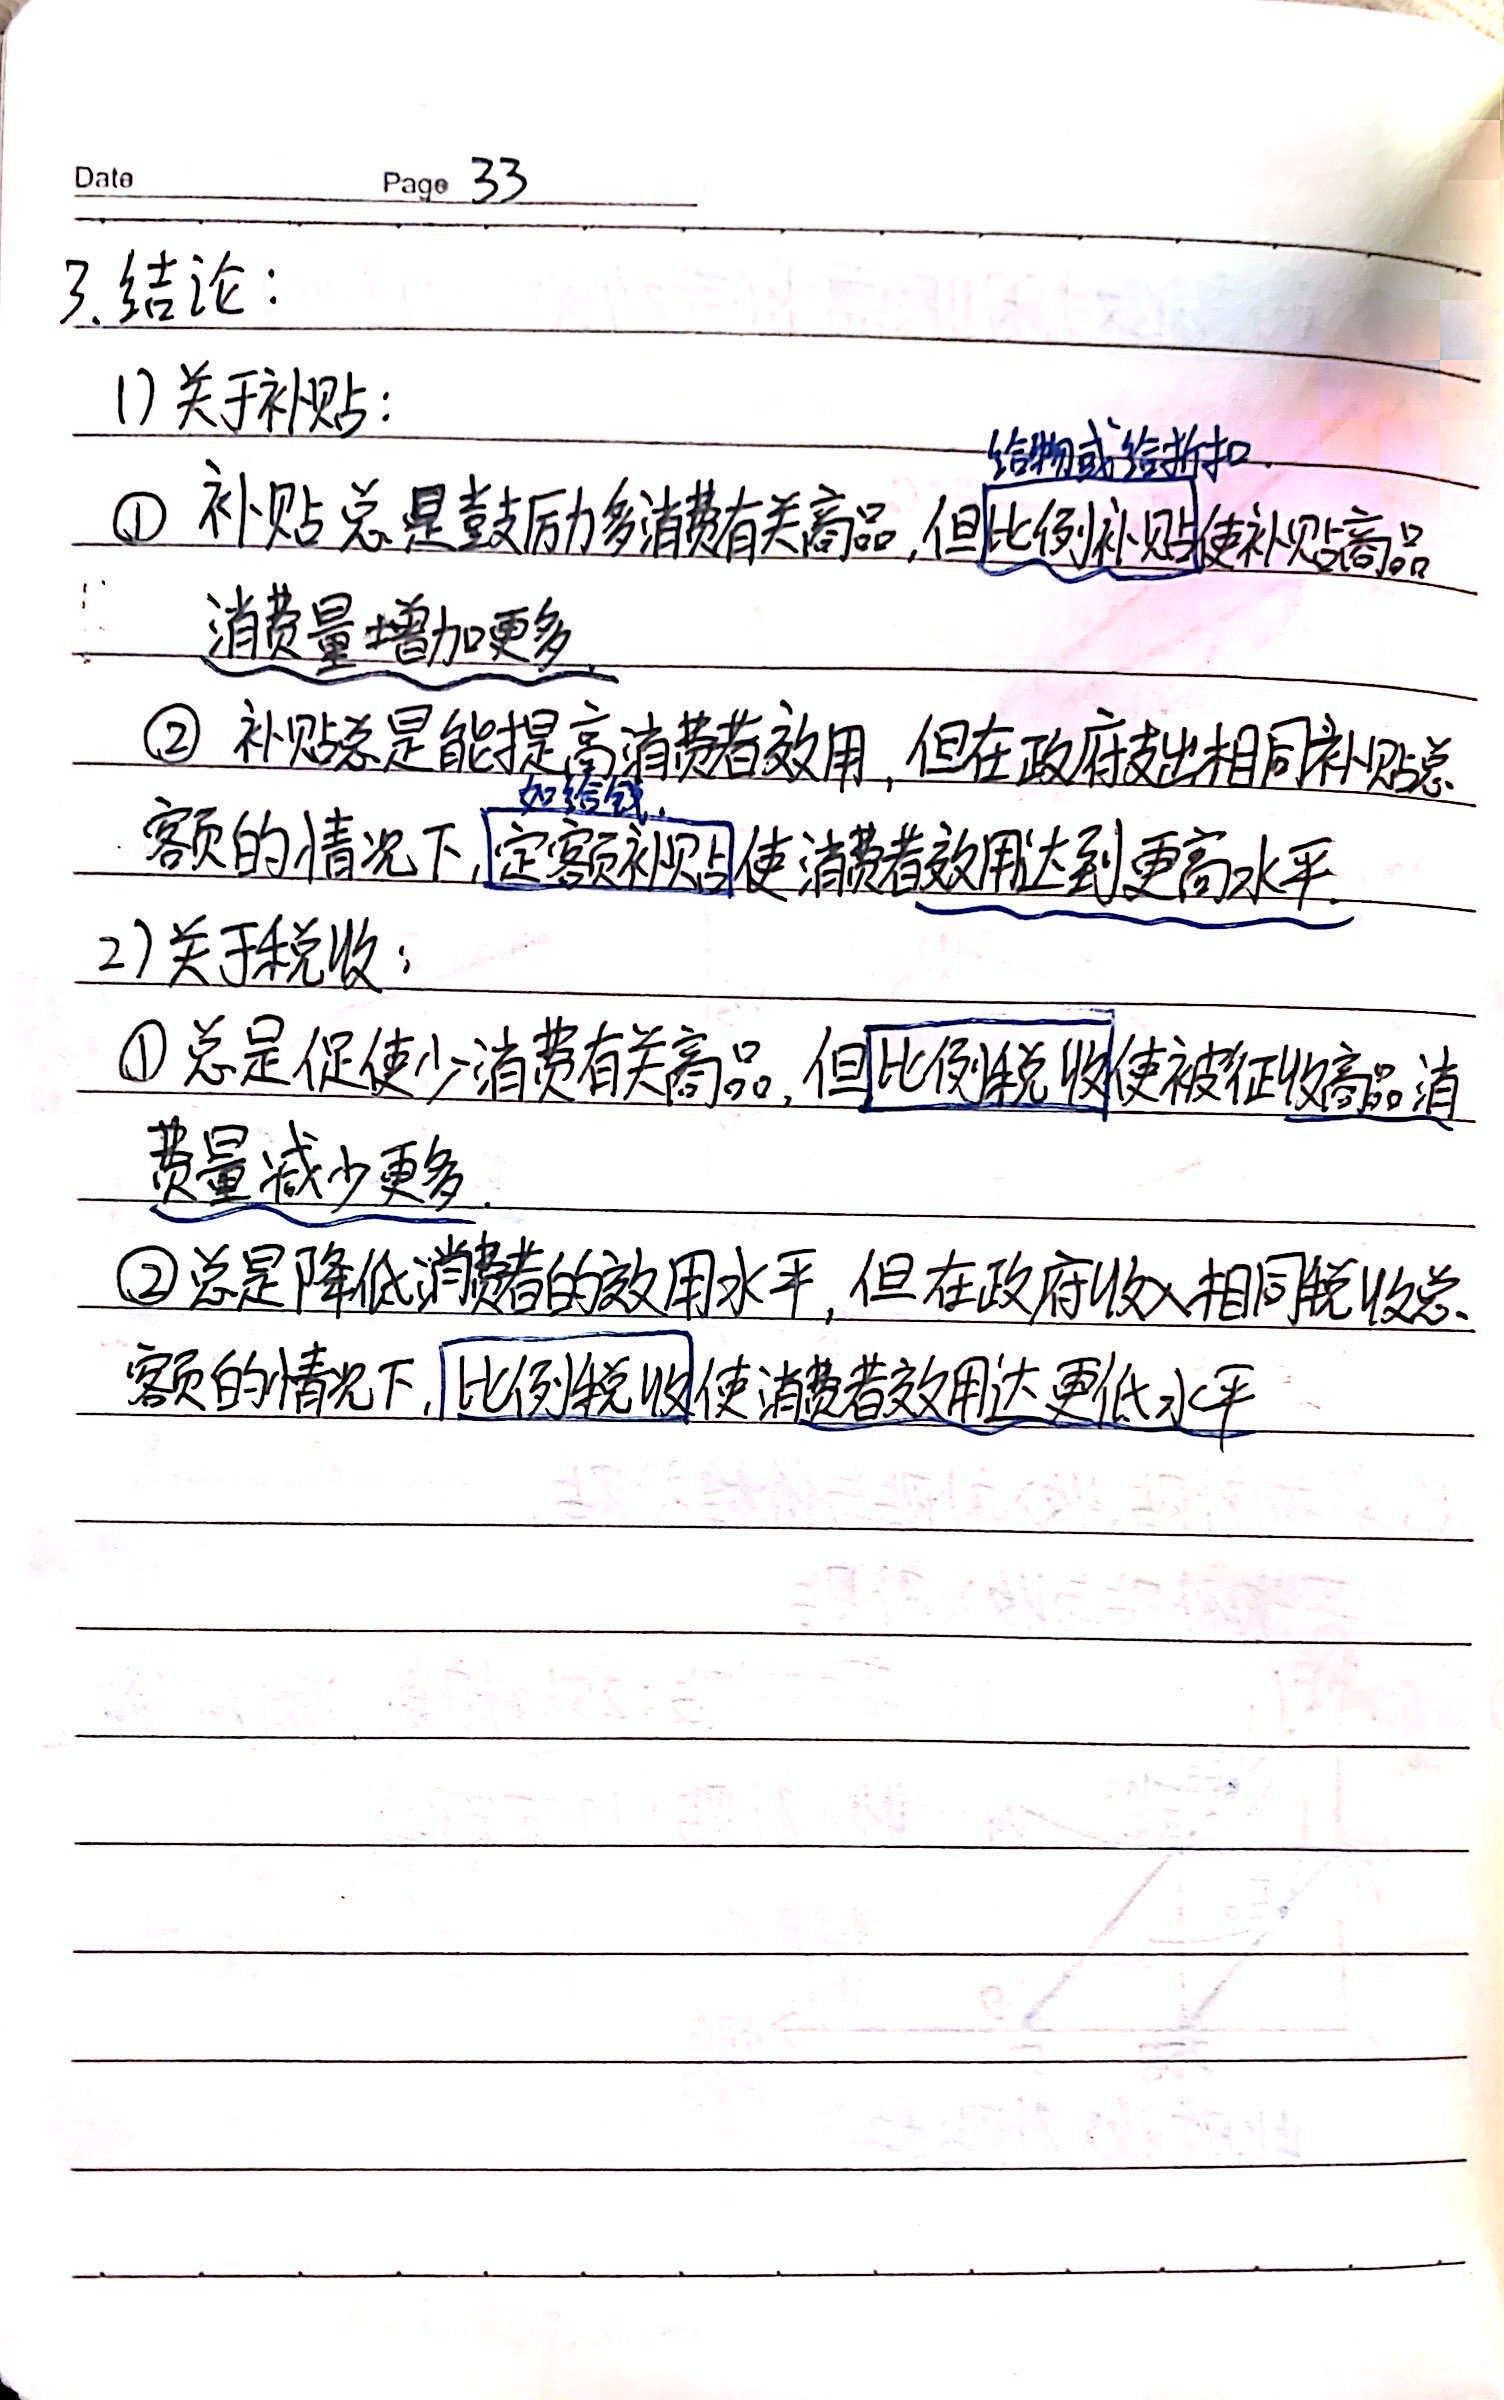 Date Page 33
3. 结论：
1) 关于补贴：
给物或给折扣.
① 补贴总是鼓励多消费有关商品,但比例补贴使补贴商品
消费量增加更多.
② 补贴总是能提高消费者效用,但在政府支出相同补贴总
如给钱.
额的情况下,定额补贴使消费者效用达到更高水平.
2) 关于税收：
① 总是促使少消费有关商品,但比例税收使被征收商品消
费量减少更多.
② 总是降低消费者的效用水平,但在政府收入相同税收总
额的情况下,比例税收使消费者效用达更低水平